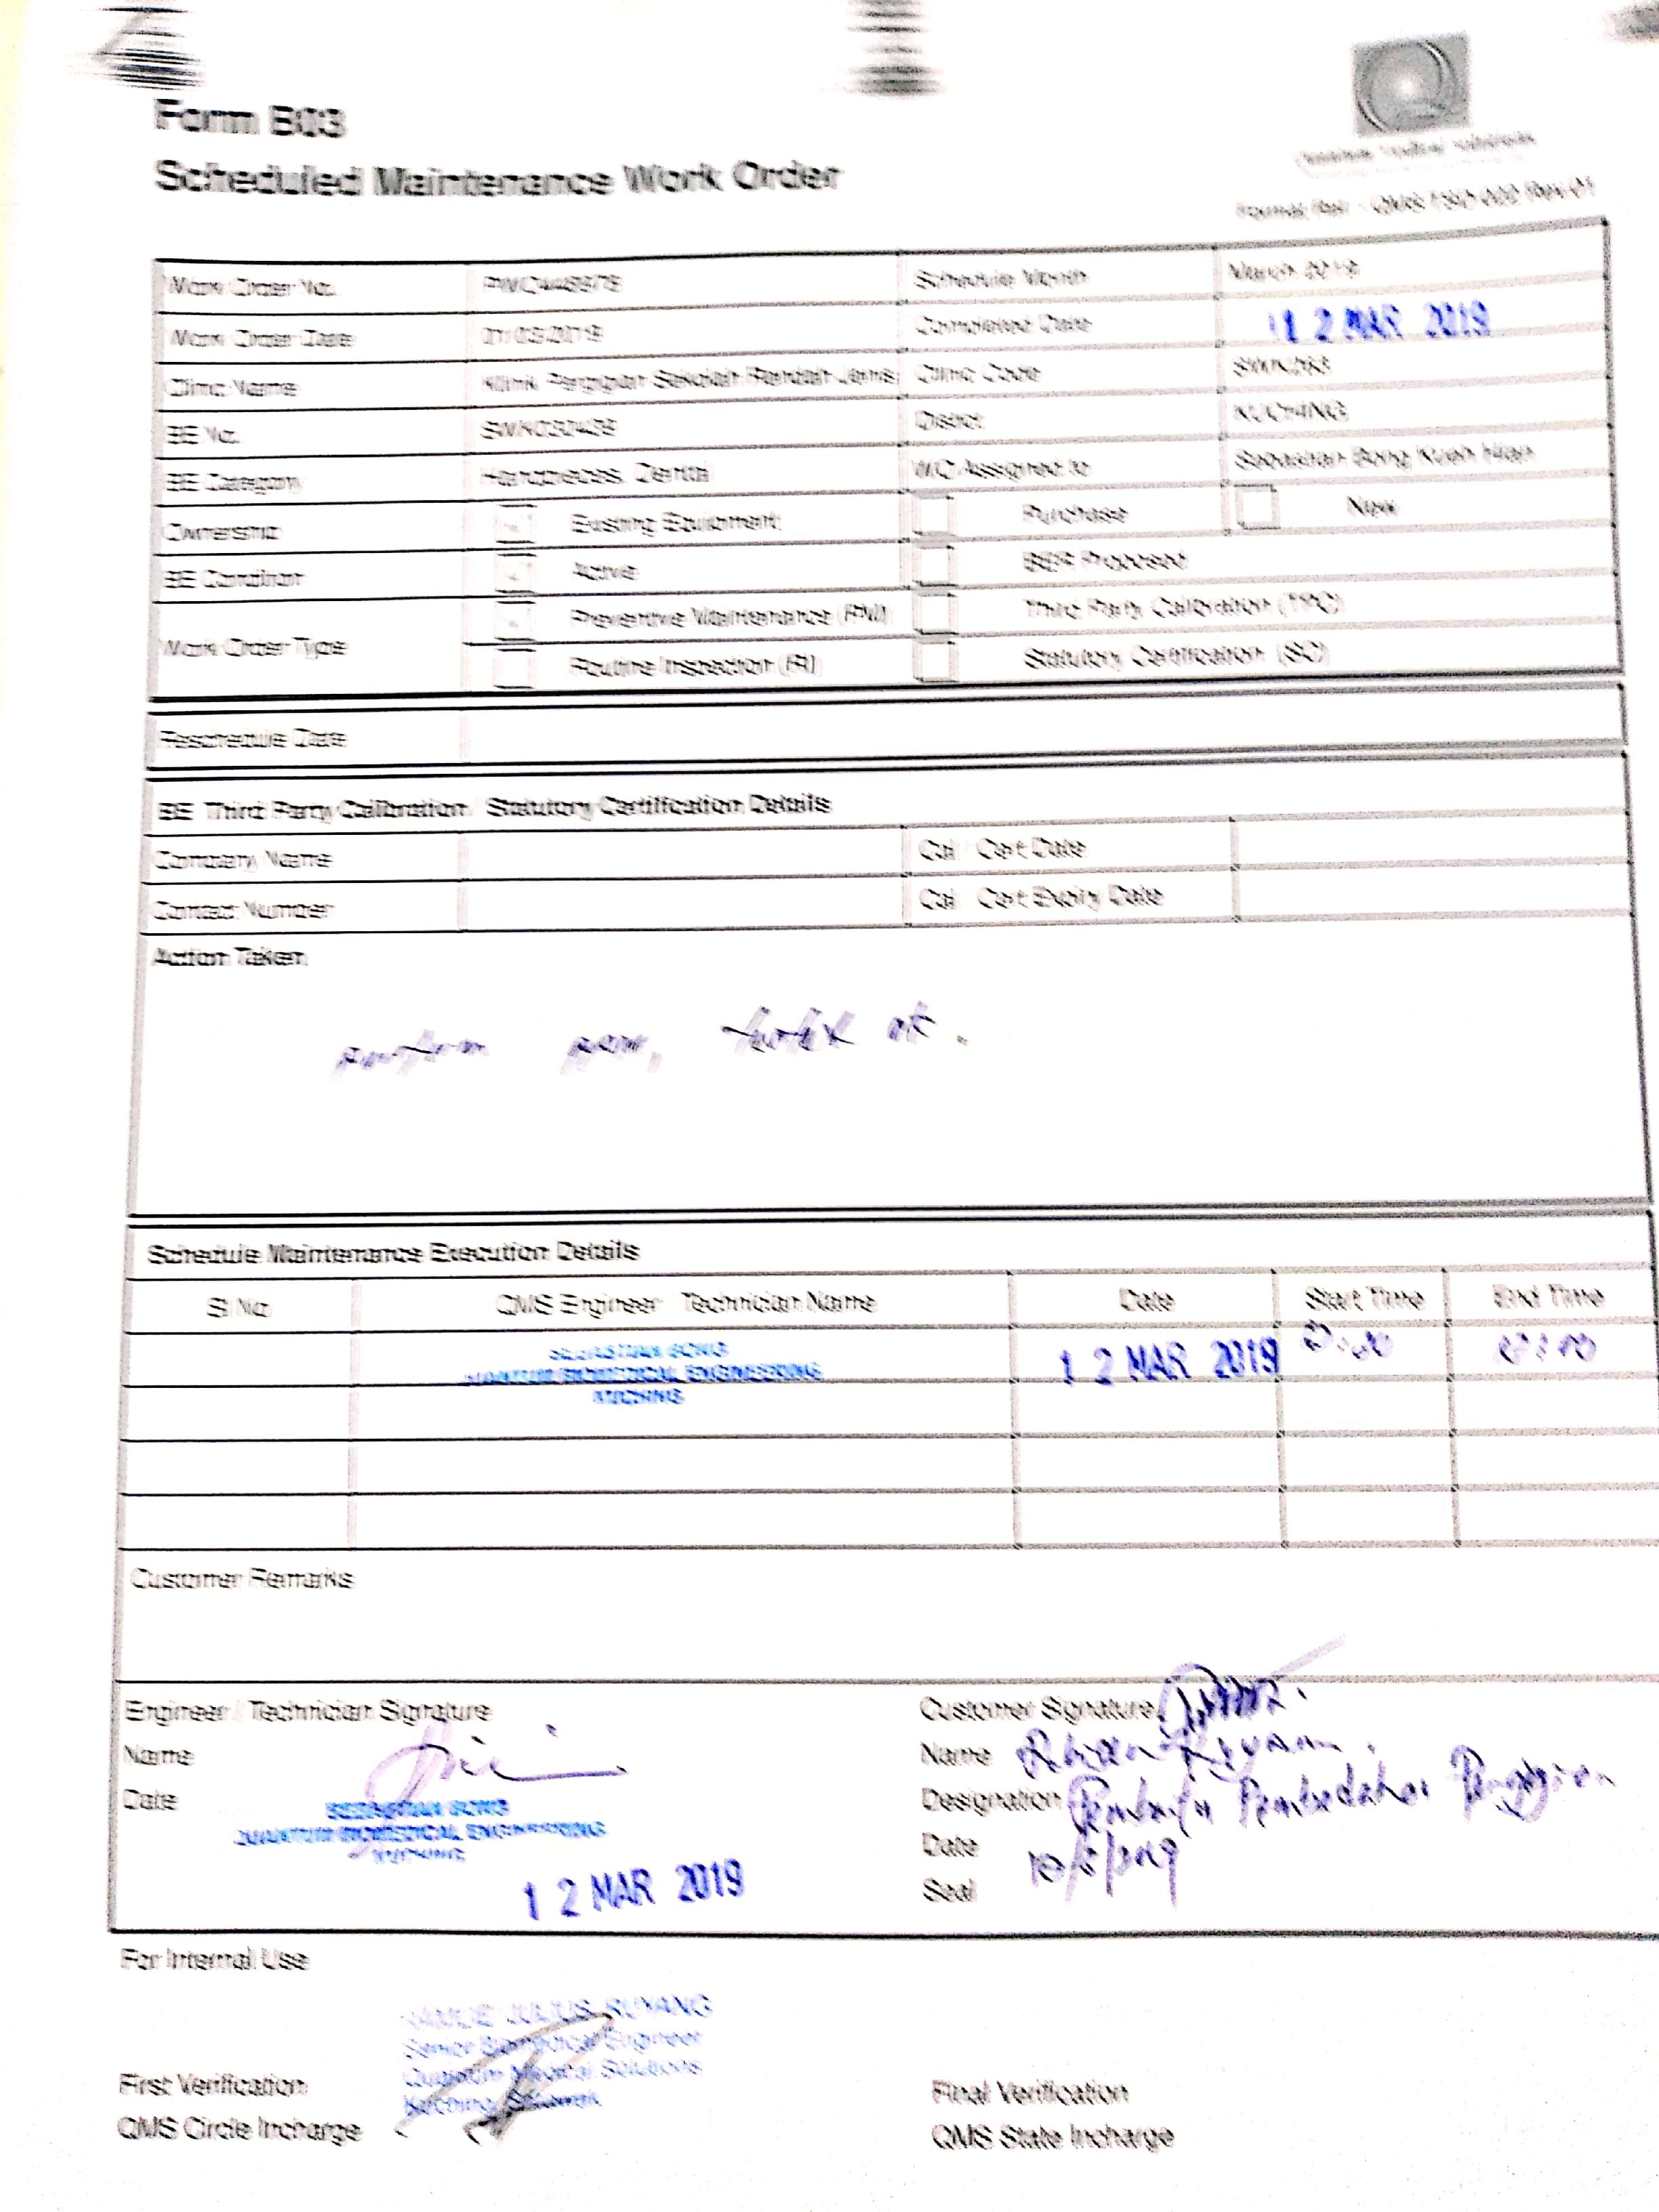 Form B03
Scheduled Maintenance Work Order
Quantum Medical Solutions
Work Order No. Schedule Month March 2019
Work Order Date 01/03/2019 Completed Date 12 MAR 2019
Clinic Name Klinik Pergigian Sekolah Rendah Jenis Clinic Code
BE No. District KUCHING
BE Category Handpieces, Dental WO Assigned to Sebastian Bong Kueh
Ownership Existing Equipment Purchase New
BE Condition Active BER Proposed
Work Order Type Preventive Maintenance (PM) Third Party Calibration (TPC)
Routine Inspection (RI) Statutory Certification (SC)
Reschedule Date
BE Third Party Calibration / Statutory Certification Details
Company Name Cal / Cert Date
Contact Number Cal / Cert Expiry Date
Action Taken
perform ppm, ok.
Schedule Maintenance Execution Details
Sl No QMS Engineer / Technician Name Date Start Time End Time
SEBASTIAN BONG
QUANTUM BIOMEDICAL ENGINEERING
KUCHING
12 MAR 2019
Customer Remarks
Engineer / Technician Signature
Name
Date
SEBASTIAN BONG
QUANTUM BIOMEDICAL ENGINEERING
KUCHING
12 MAR 2019
Customer Signature
Name
Designation Pembantu Pembedahan Pergigian
Date
Seal
For Internal Use
JULIUS RUYANG
Senior Biomedical Engineer
Quantum Medical Solutions
Kuching, Sarawak
First Verification
QMS Circle Incharge
Final Verification
QMS State Incharge